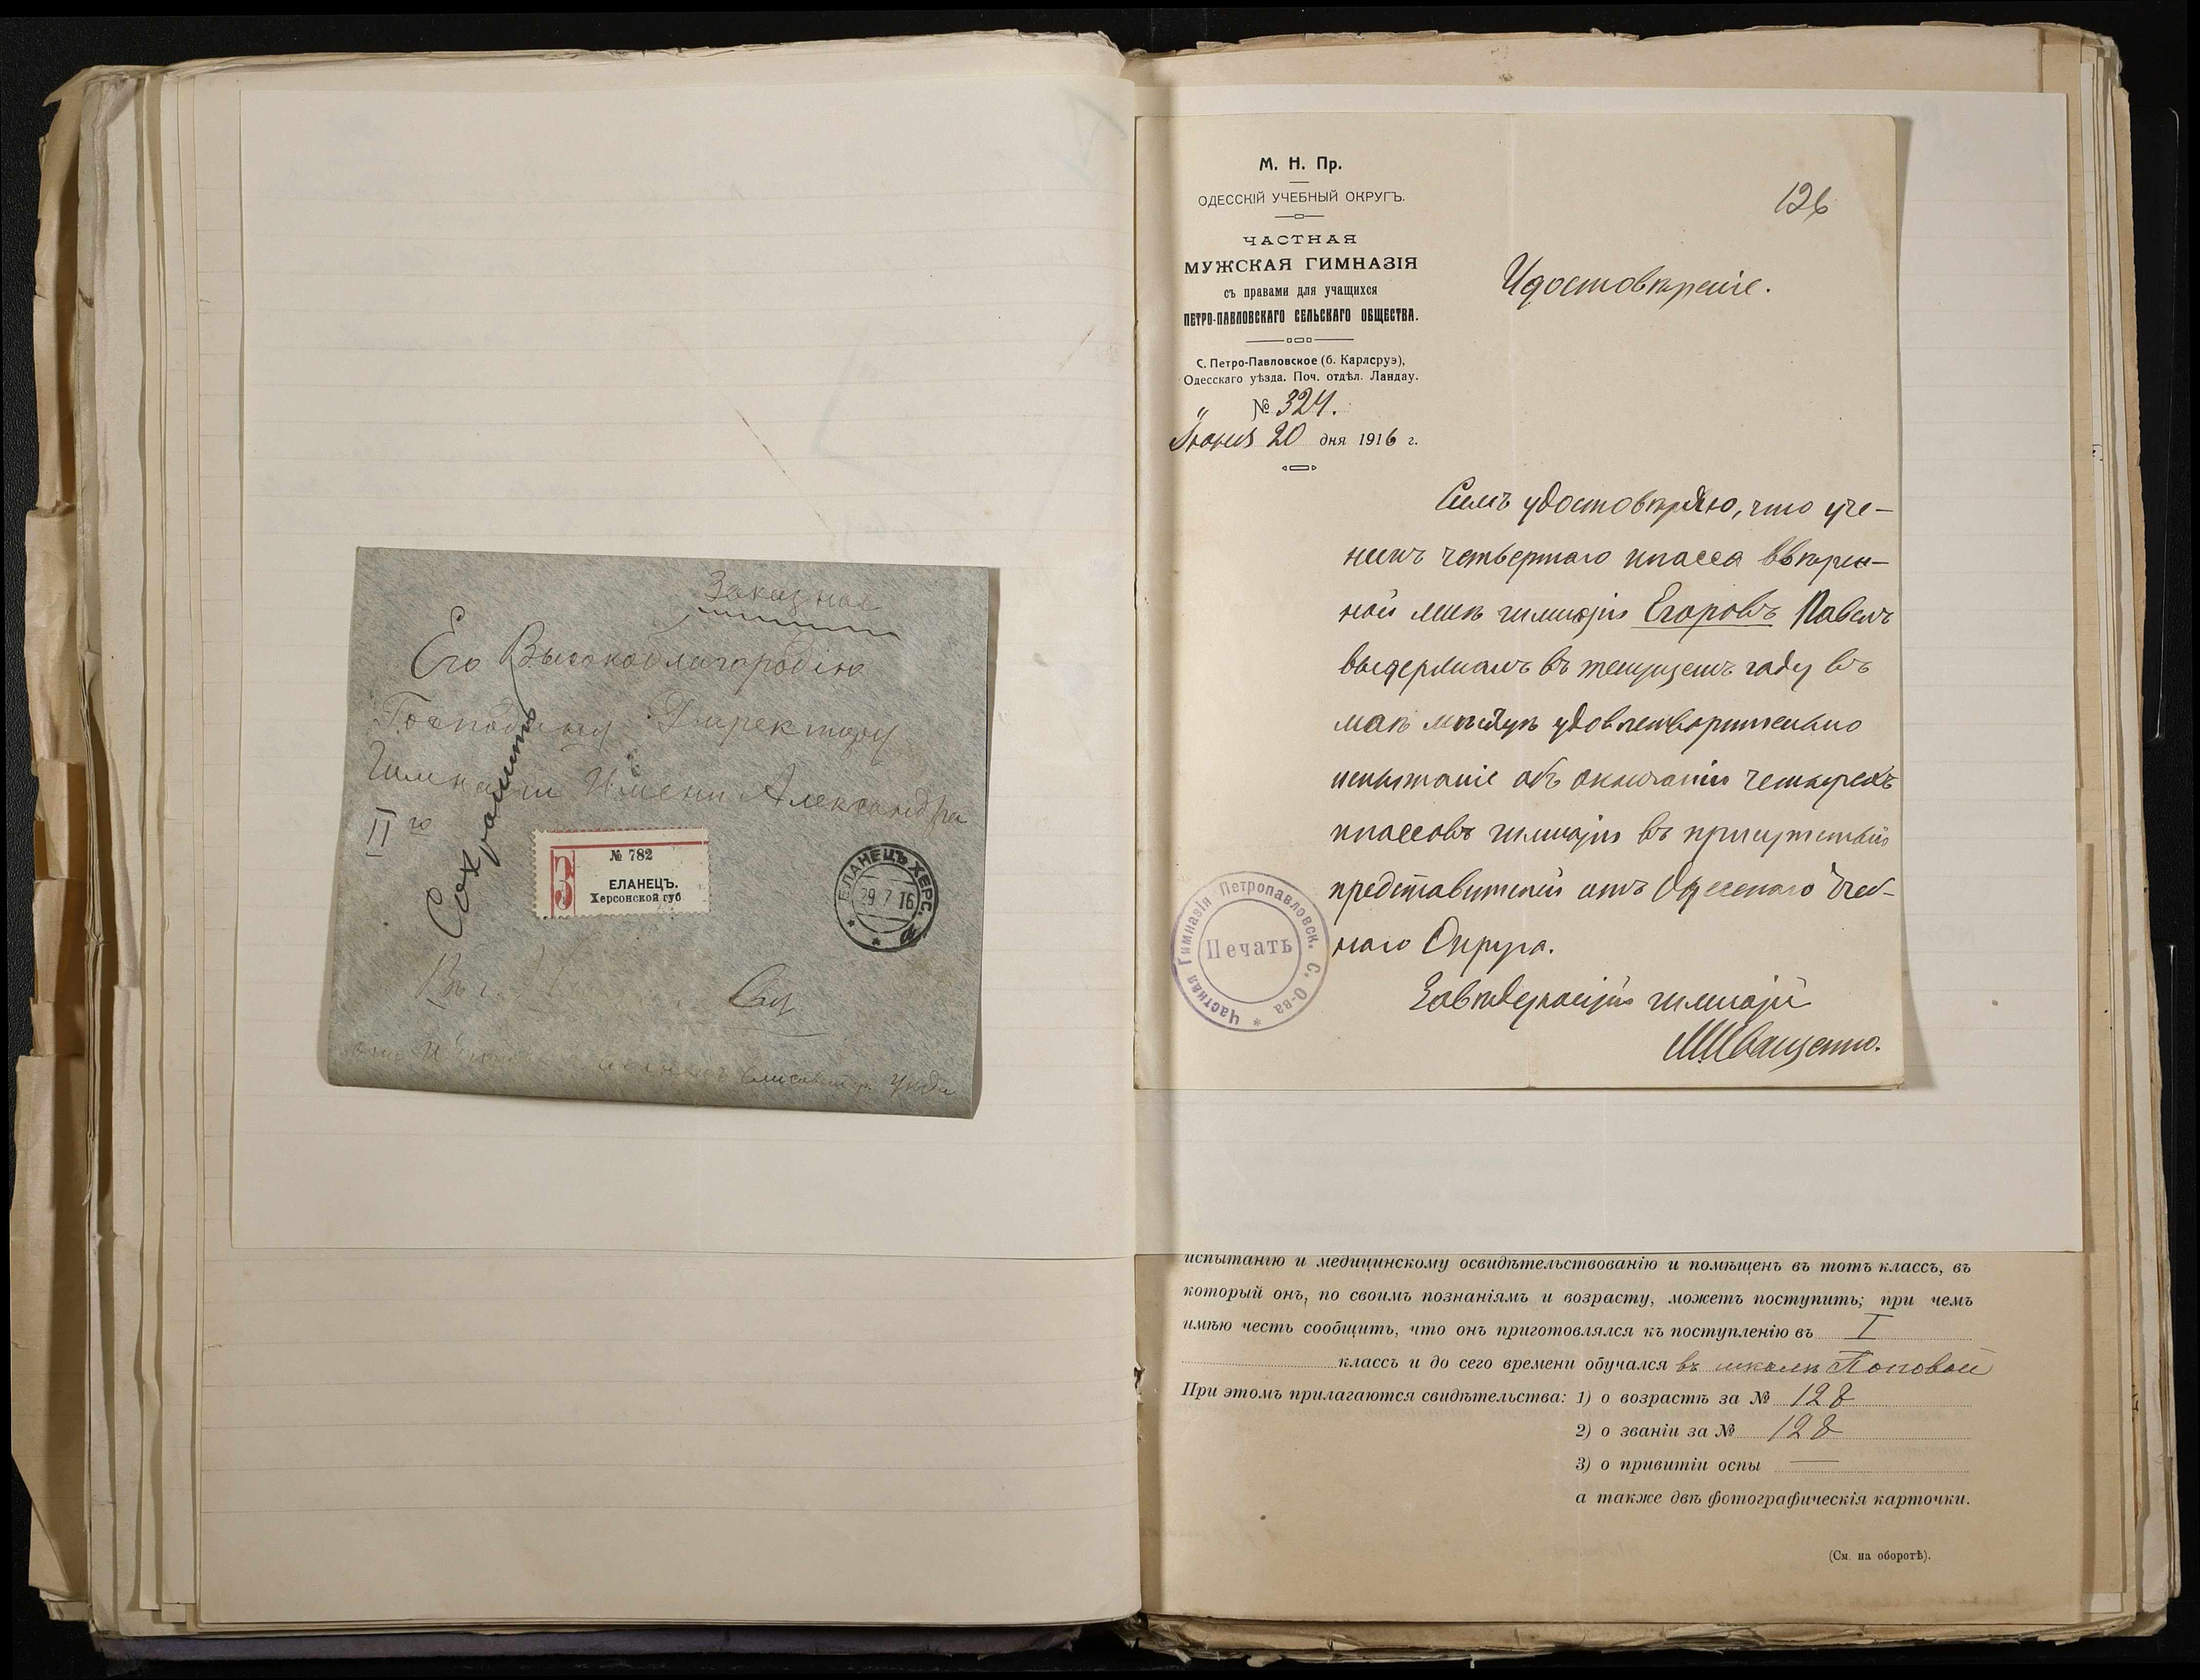 Заказное
Его Высокоблагородію
Господину Директору
Гимназіи Имени Александра
II го
Сохранить
З
№ 782
ЕЛАНЕЦЪ.
Херсонской губ
ЕЛАНЕЦЪ ХЕРС.
29 7 16
Въ г.
Елисаветгр. уѣзда
М. Н. Пр.
ОДЕССКІЙ УЧЕБНЫЙ ОКРУГЪ.
ЧАСТНАЯ
МУЖСКАЯ ГИМНАЗІЯ
съ правами для учащихся
ПЕТРО-ПАВЛОВСКАГО СЕЛЬСКАГО ОБЩЕСТВА.
С. Петро-Павловское (б. Карлсруэ),
Одесскаго уѣзда. Поч. отдѣл. Ландау.
№ 324.
Іюня 20 дня 1916 г.
126
Удостовѣреніе.
Симъ удостовѣряю, что уче-
никъ четвертаго класса ввѣрен-
ной мнѣ гимназіи Егоровъ Павелъ
выдержалъ въ текущемъ году въ
маѣ мѣсяцѣ удовлетворительно
испытаніе объ окончаніи четырехъ
классовъ гимназіи въ присутствіи
представителей отъ Одесскаго Учеб-
наго Округа.
Завѣдующій гимназіей
М. Иващенко.
Частная Гимназія Петропавловск. С. О-ва *
Печать
испытанію и медицинскому освидѣтельствованію и помѣщенъ въ тотъ классъ, въ
который онъ, по своимъ познаніямъ и возрасту, можетъ поступить; при чемъ
имѣю честь сообщить, что онъ приготовлялся къ поступленію въ I
классъ и до сего времени обучался въ школѣ Поповой
При этомъ прилагаются свидѣтельства: 1) о возрастѣ за № 128
2) о званіи за № 128
3) о привитіи оспы —
а также двѣ фотографическія карточки.
(См. на оборотѣ).